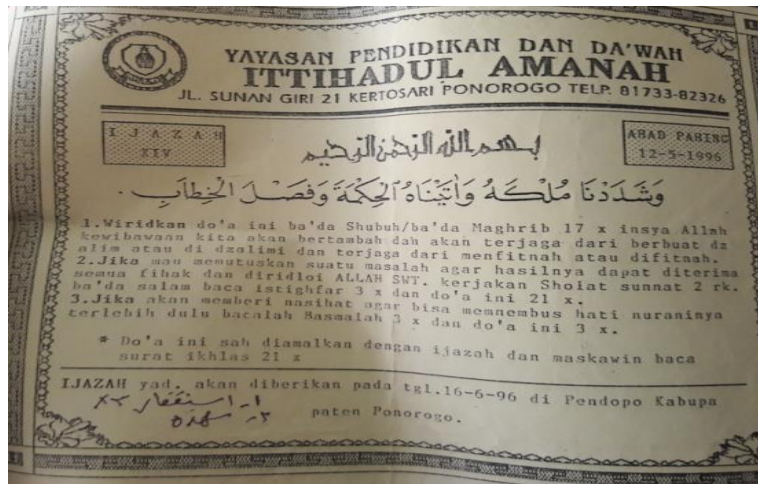 YAYASAN PENDIDIKAN DAN DA'WAH
ITTIHADUL AMANAH
JL. SUNAN GIRI 21 KERTOSARI PONOROGO TELP. 81733-82326
I J A Z A H
XIV
بسم الله الرحمن الرحيم
AHAD PAHING
12-5-1996
وَشَدَدْنَا مُلْكَهُ وَآتَيْنَاهُ الْحِكْمَةَ وَفَصْلَ الْخِطَابِ .
1.Wiridkan do'a ini ba'da Shubuh/ba'da Maghrib 17 x insya Allah
kewibawaan kita akan bertambah dah akan terjaga dari berbuat dz
alim atau di dzalimi dan terjaga dari menfitnah atau difitnah.
2.Jika mau memutuskan suatu masalah agar hasilnya dapat diterima
semua fihak dan diridloi ALLAH SWT. kerjakan Sholat sunnat 2 rk.
ba'da salam baca istighfar 3 x dan do'a ini 21 x.
3.Jika akan memberi nasihat agar bisa memnembus hati nuraninya
terlebih dulu bacalah Basmalah 3 x dan do'a ini 3 x.
* Do'a ini sah diamalkan dengan ijazah dan maskawin baca
surat ikhlas 21 x
IJAZAH yad. akan diberikan pada tgl.16-6-96 di Pendopo Kabupa
paten Ponorogo.
١- استغفار